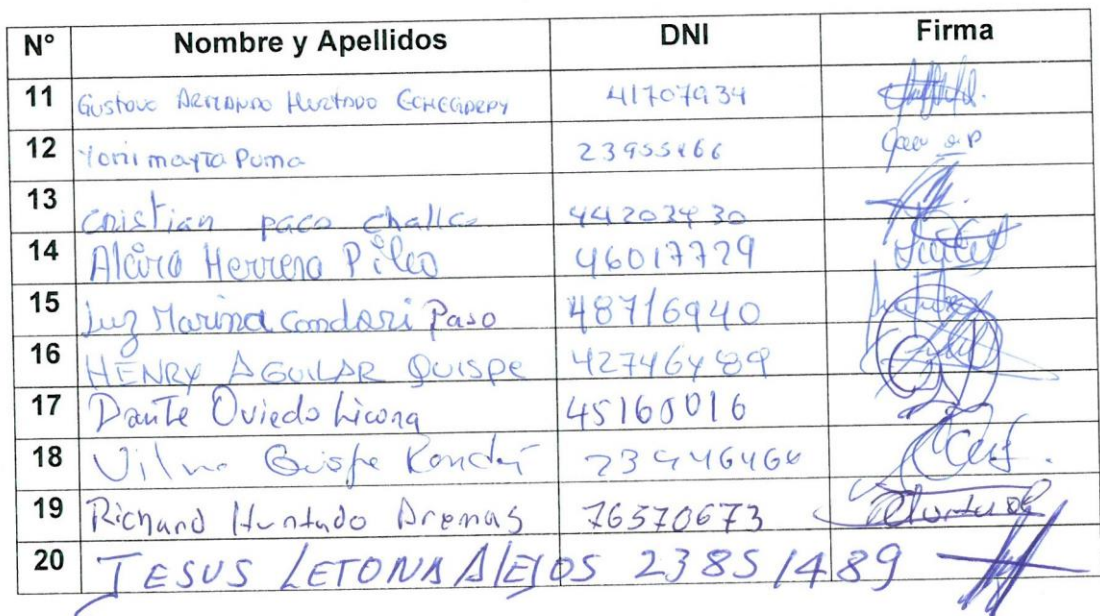 N° Nombre y Apellidos DNI Firma
11 Gustavo Armando Hurtado Echegaray 41707934
12 Yoni mayta Puma
13 Cristian paco challco 44203430
14 Alvaro Herrera Pilco 46017729
15 Luz Marina Condori Paso 48716940
16 HENRY AGUILAR QUISPE 42746489
17 Dante Oviedo Licona 45160016
18 Vilma Quispe
19 Richard Hurtado Arenas 76570673
20 JESUS LETONA AlEJOS 23851489